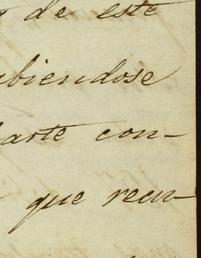 de este
biendose
arte con-
que recu-